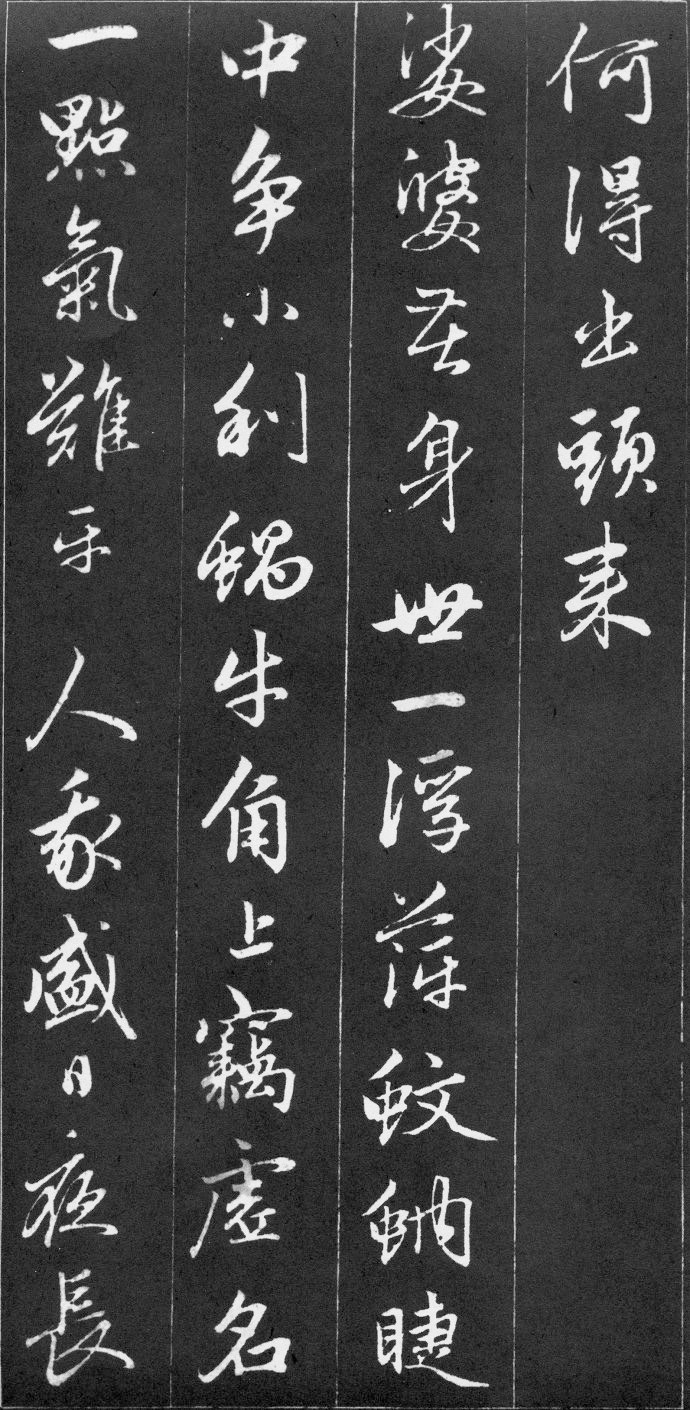 何得出頭來
娑婆苦身世一浮萍蚊蚋睫
中爭小利蝸牛角上竊虛名
一點氣難平人我盛日夜長